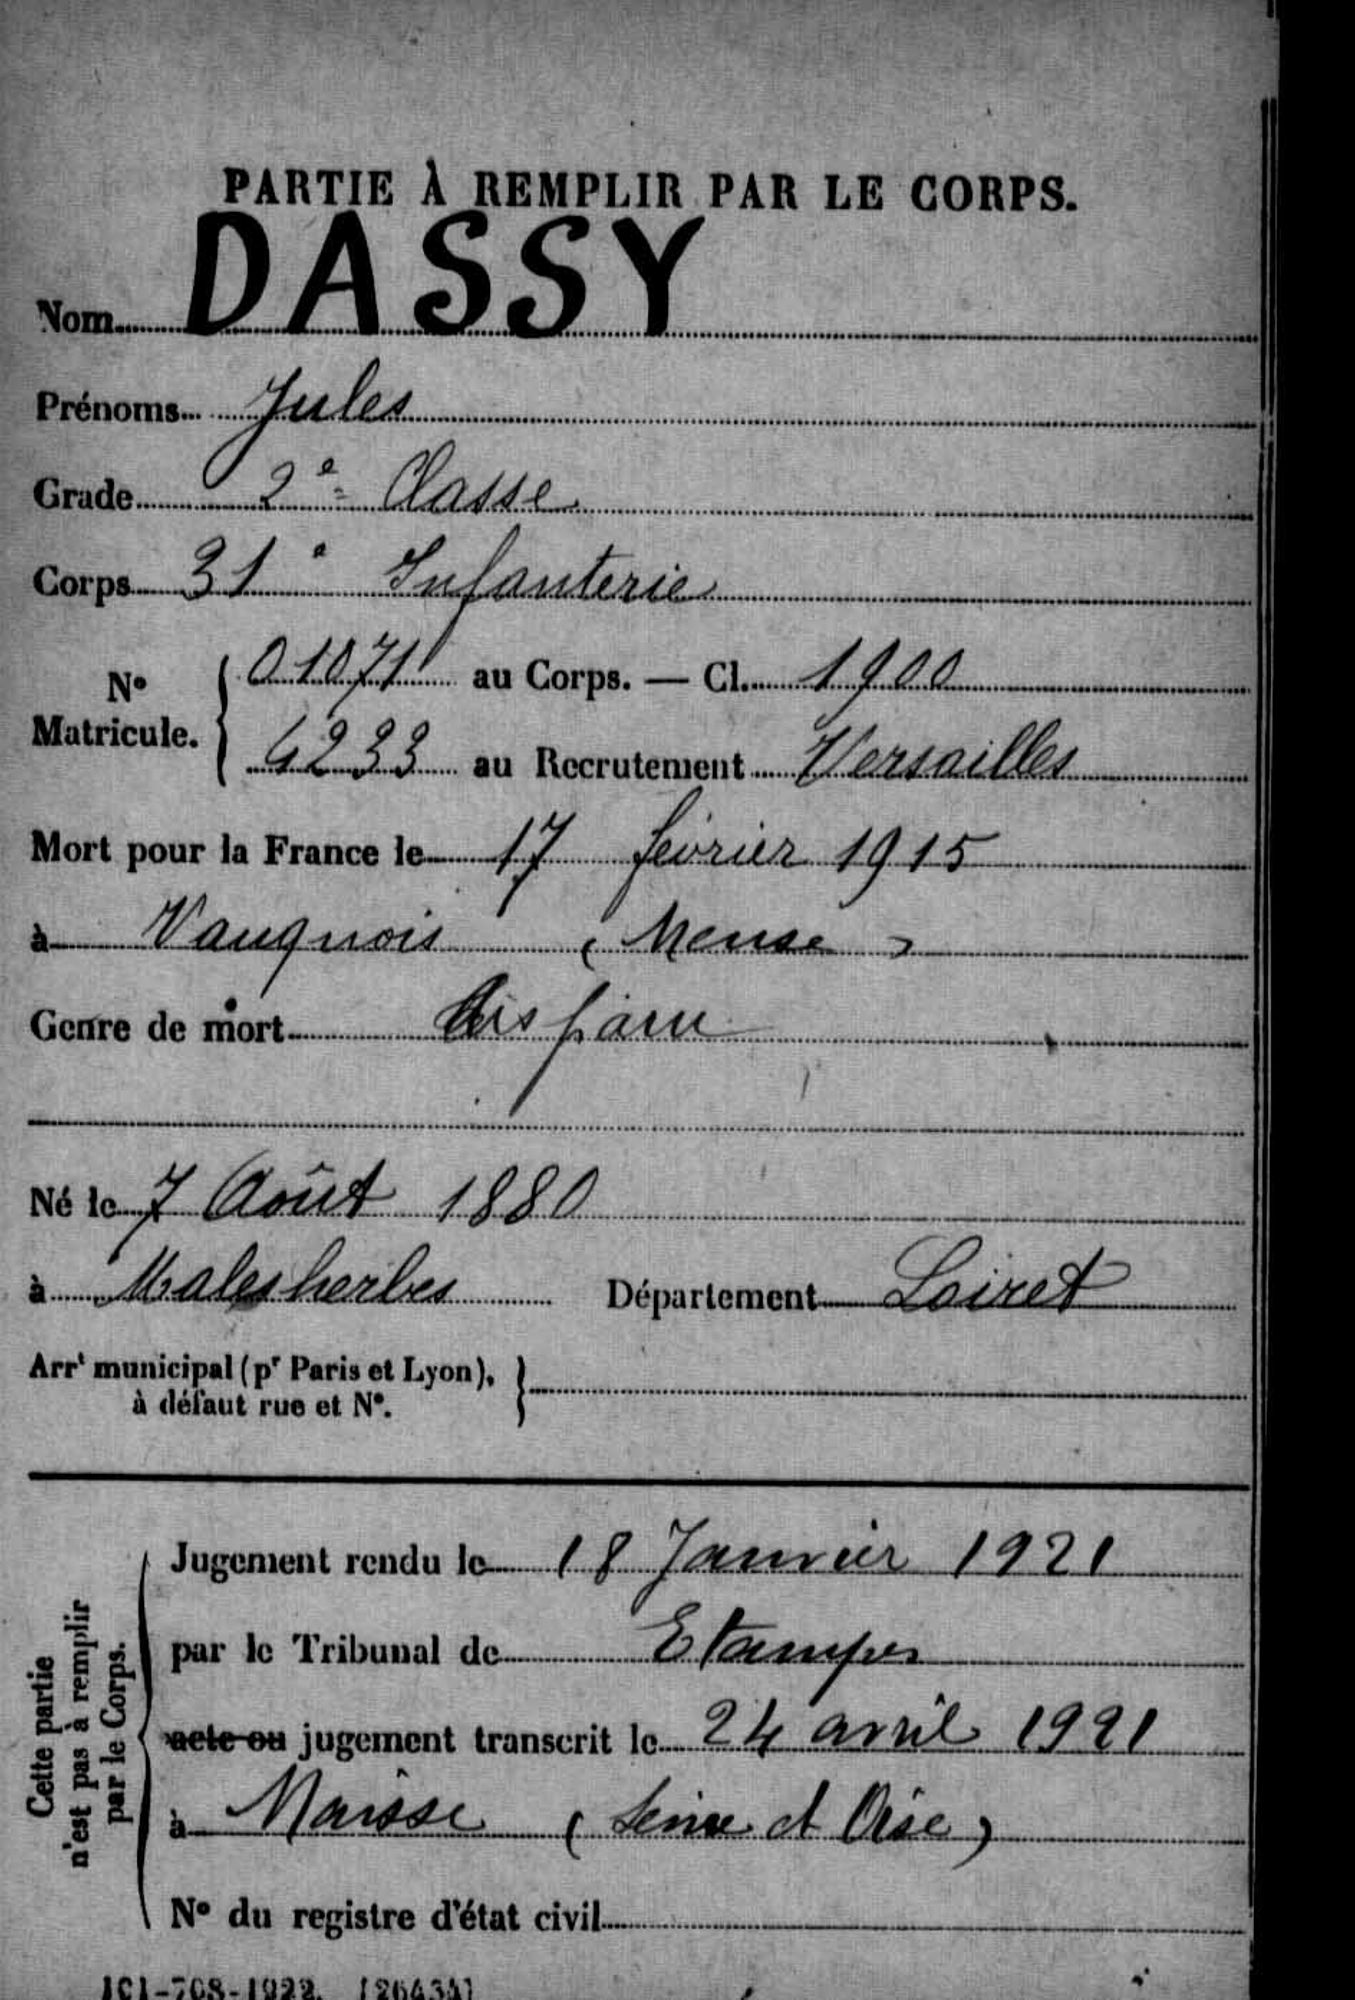 PARTIE À REMPLIR PAR LE CORPS.
Nom DASSY
Prénoms Jules
Grade 2e Classe
Corps 31e Infanterie
No Matricule. { 01071 au Corps. — Cl. 1900
4233 au Recrutement Versailles
Mort pour la France le 17 février 1915
à Vauquois (Meuse)
Genre de mort disparu
Né le 7 Août 1880
à Malesherbes Département Loiret
Arrt municipal (pr Paris et Lyon), }
à défaut rue et No.
Cette partie
n'est pas à remplir
par le Corps.
Jugement rendu le 18 Janvier 1921
par le Tribunal de Etampes
acte ou jugement transcrit le 24 avril 1921
à Maisse (Seine et Oise)
No du registre d'état civil
101-708-1922. [26434]